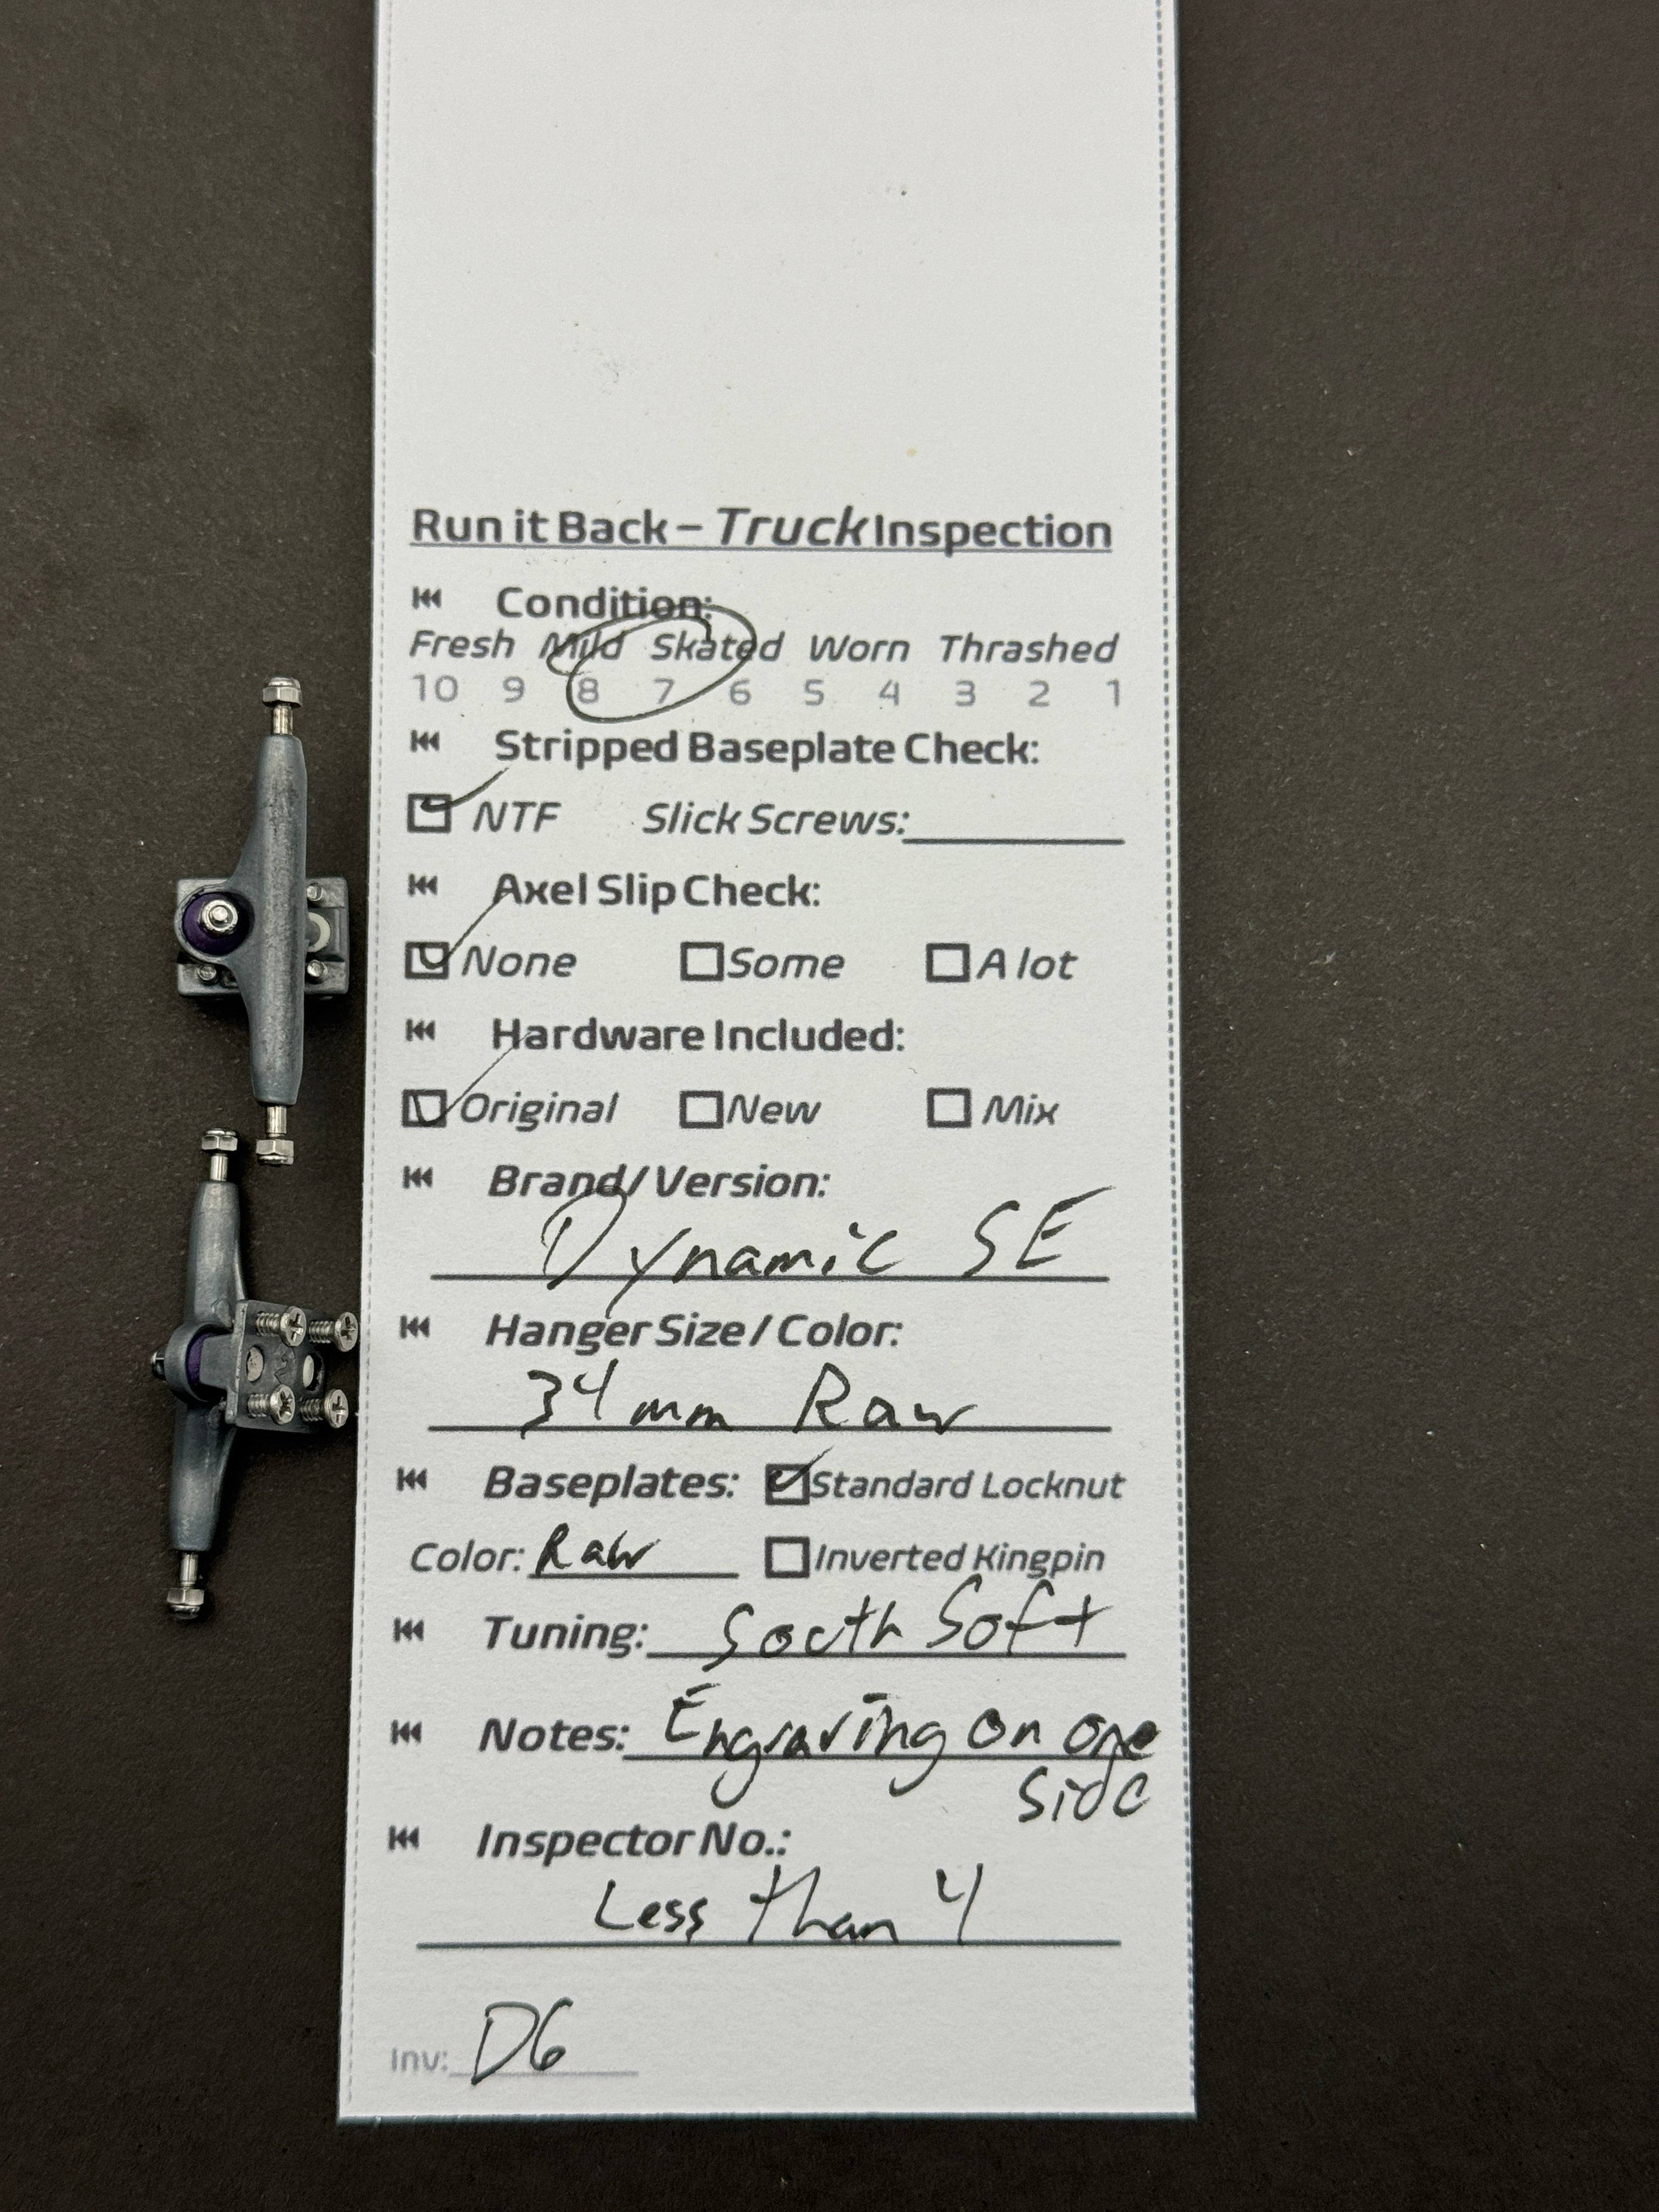 Run it Back – Truck Inspection
Condition:
Fresh Mild Skated Worn Thrashed
10 9 8 7 6 5 4 3 2 1
Stripped Baseplate Check:
NTF Slick Screws:
Axel Slip Check:
None Some A lot
Hardware Included:
Original New Mix
Brand/Version:
Dynamic SE
Hanger Size / Color:
34mm Raw
Baseplates: Standard Locknut
Color: Raw Inverted Kingpin
Tuning: South Soft
Notes: Engraving on one
side
Inspector No.:
Less than 4
Inv: D6